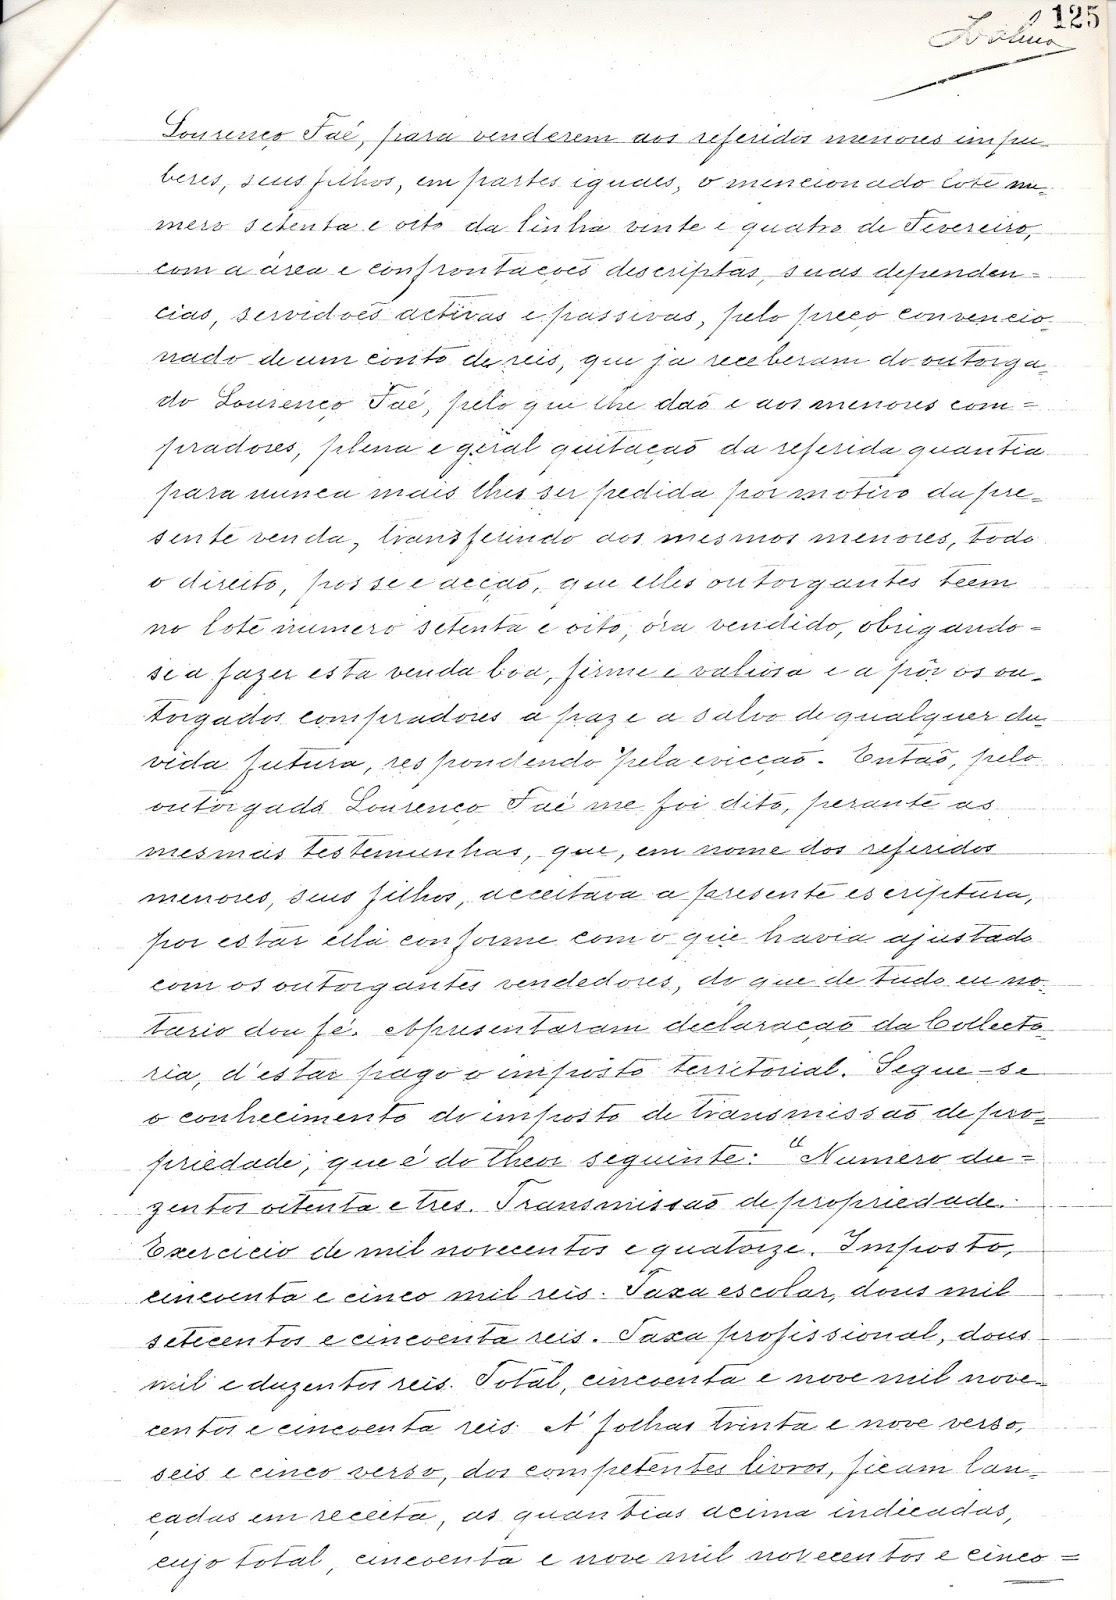 125
Lourenço Faé, para venderem aos referidos menores impu-
beres, seus filhos, em partes iguaes, o mencionado lote nu-
mero setenta e oito da linha vinte e quatro de Fevereiro,
com a área e confrontações descriptas, suas dependen-
cias, servidoẽs activas e passivas, pelo preço convencio-
nado de um conto de reis, que já receberam do outorga-
do Lourenço Faé, pelo que lhe daõ e aos menores com-
pradores, plena e geral quitaçaõ da referida quantia
para nunca mais lhes ser pedida por motivo da pre-
sente venda, transferindo aos mesmos menores, todo
o direito, posse e acçaõ, que elles outorgantes teem
no lote numero setenta e oito, óra vendido, obrigando-
se a fazer esta venda boa, firme e valiosa e a pôr os ou-
torgados compradores a paz e a salvo de qualquer du-
vida futura, respondendo pela evicçaõ. Entaõ, pelo
outorgado Lourenço Faé me foi dito, perante as
mesmas testemunhas, que, em nome dos referidos
menores, seus filhos, acceitava a presente escriptura,
por estar ella conforme com o que havia ajustado
com os outorgantes vendedores, do que de tudo eu no-
tario dou fé. Apresentaram declaraçaõ da Collecto-
ria, d'estar pago o imposto territorial. Segue-se
o conhecimento do imposto de transmissaõ de pro-
priedade, que é do theor seguinte: "Numero du-
zentos oitenta e tres. Transmissaõ de propriedade.
Exercicio de mil novecentos e quatorze. Imposto,
cincoenta e cinco mil reis. Taxa escolar, dous mil
setecentos e cincoenta reis. Taxa profissional, dous
mil e duzentos reis. Total, cincoenta e nove mil nove-
centos e cincoenta reis. A' folhas trinta e nove verso,
seis e cinco verso, dos competentes livros, ficam lan-
çadas em receita, as quantias acima indicadas,
cujo total, cincoenta e nove mil novecentos e cinco=